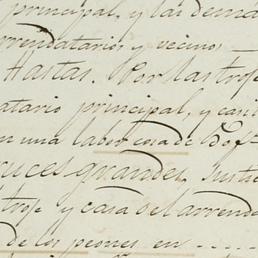 principal, y las demás
arrendatarios y vecinos
Hastas. Por las trojes
principal, y cavi
en una labor cosa de Dof
uces grandes.
troje y casa del arrenda
de los peones en